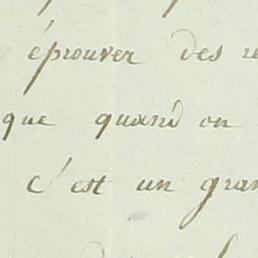 éprouver des re
que quand on
c'est un gran